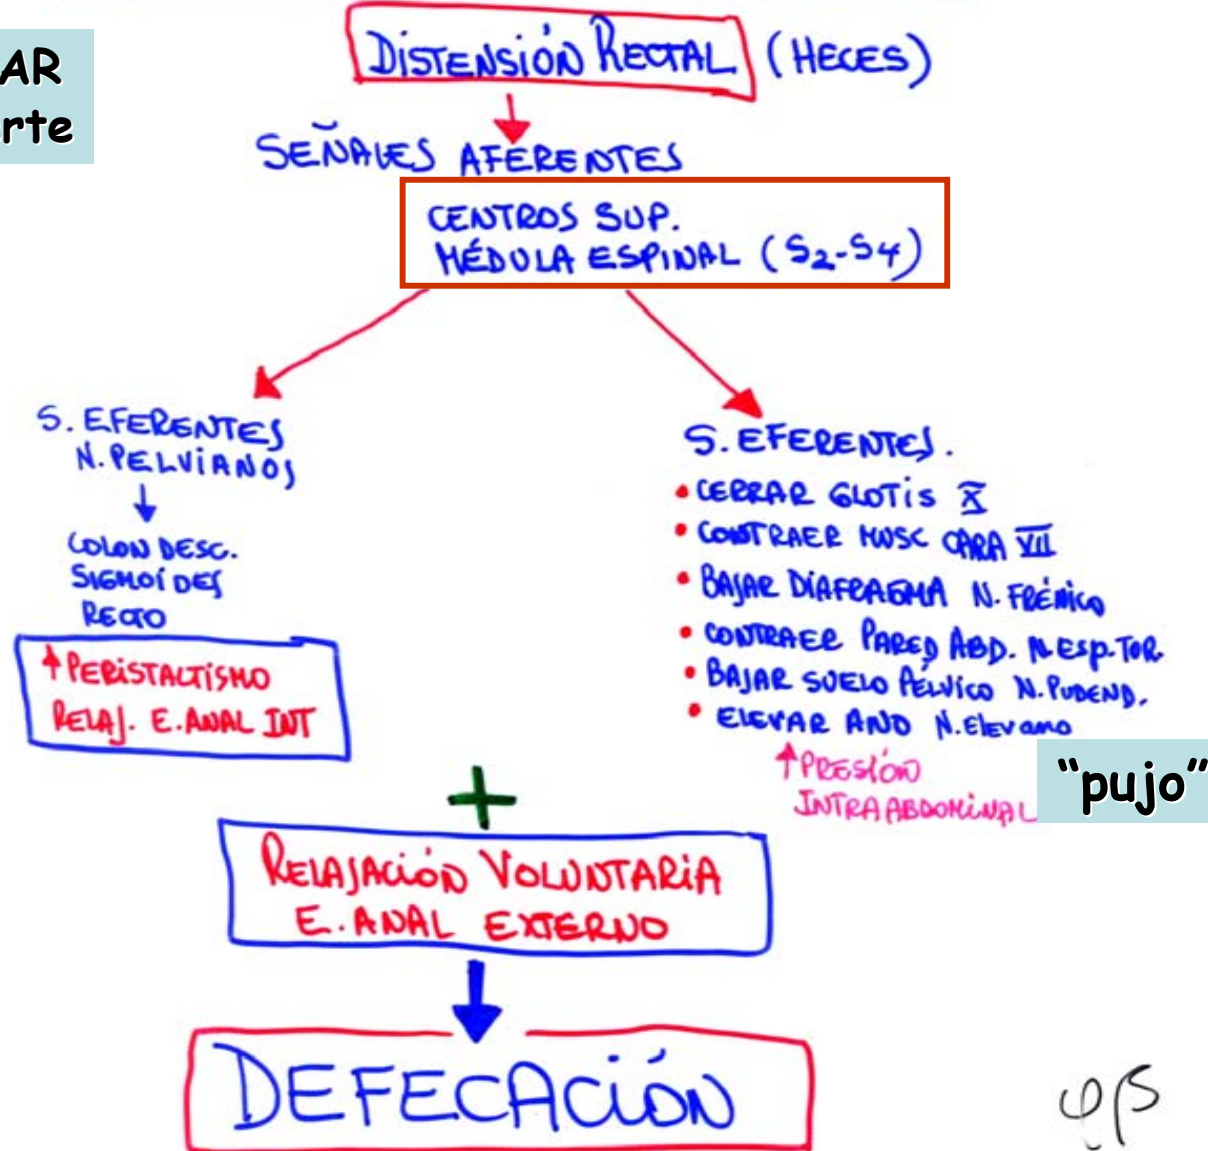 AR
rte
DISTENSIÓN RECTAL (HECES)
SEÑALES AFERENTES
CENTROS SUP.
MÉDULA ESPINAL (S2-S4)
S. EFERENTES
N. PELVIANOS
COLON DESC.
SIGMOIDES
RECTO
↑ PERISTALTISMO
RELAJ. E. ANAL INT
S. EFERENTES.
• CERRAR GLOTIS X
• CONTRAER MUSC CARA VII
• BAJAR DIAFRAGMA N. FRÉNICO
• CONTRAER PARED ABD. N. ESP. TOR.
• BAJAR SUELO PÉLVICO N. PUDEND.
• ELEVAR ANO N. Elev ano
↑ PRESIÓN
INTRAABDOMINAL
"pujo"
+
RELAJACIÓN VOLUNTARIA
E. ANAL EXTERNO
DEFECACIÓN